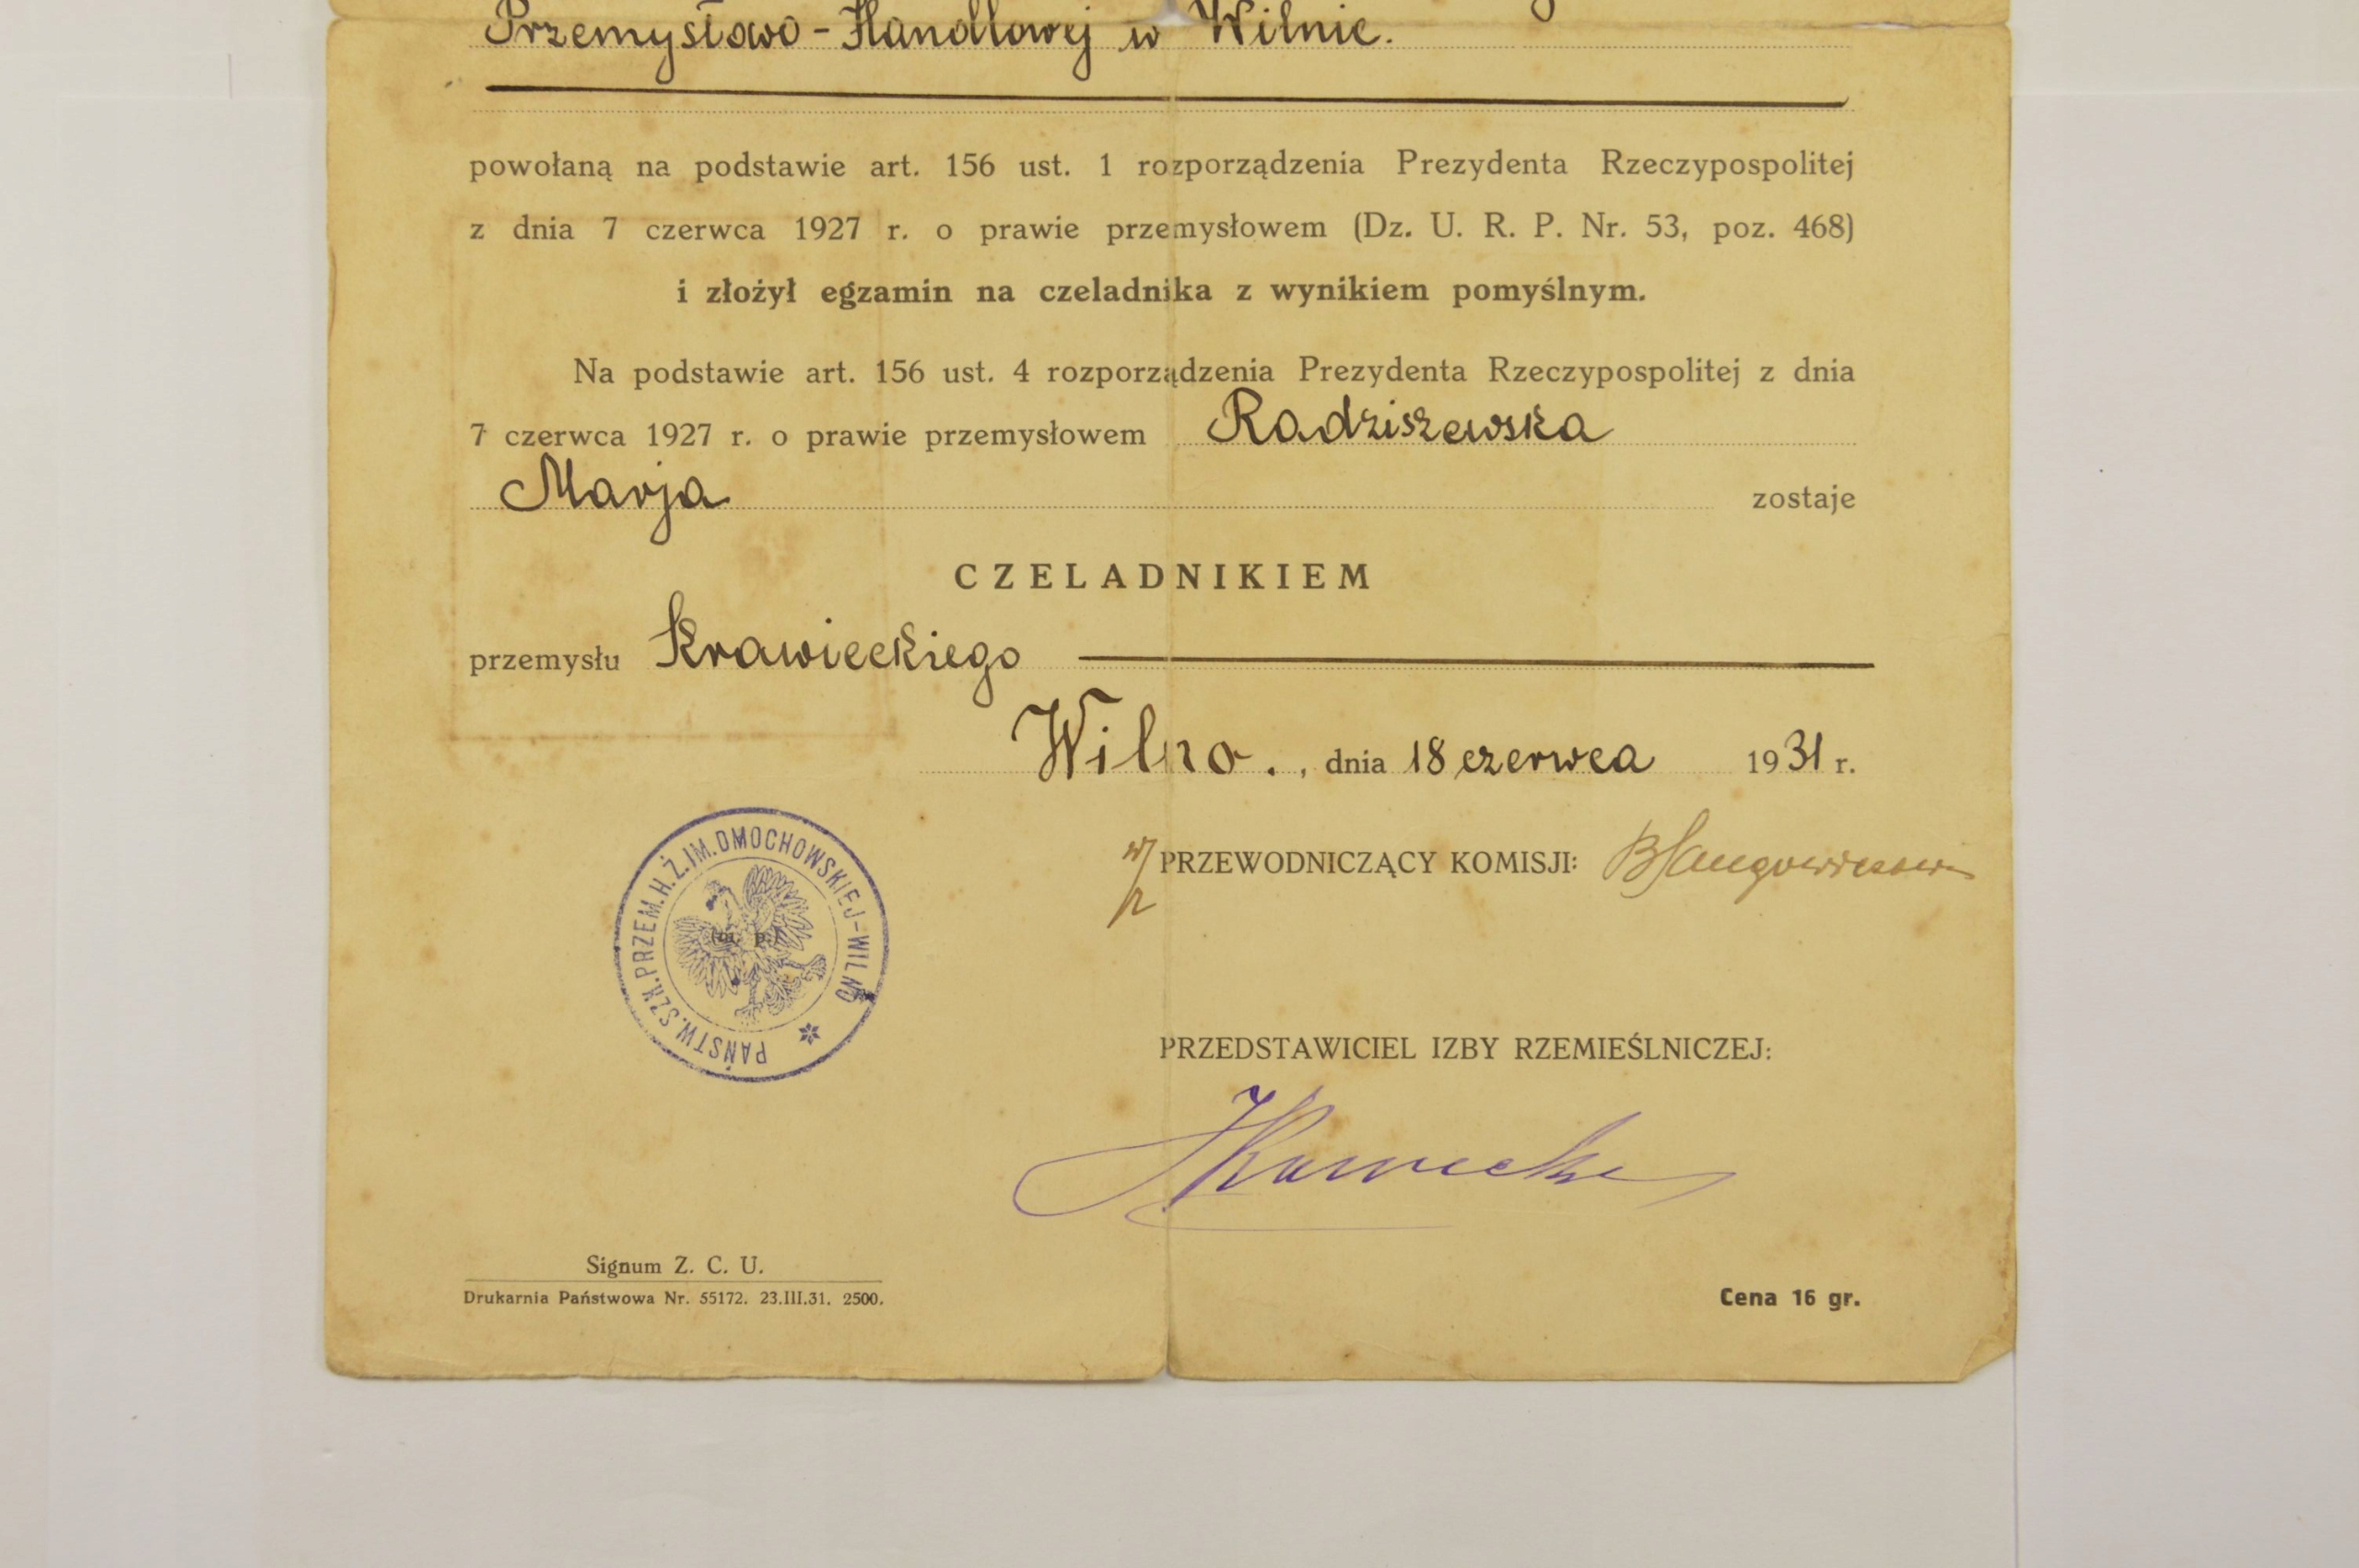 Przemysłowo-Handlowej w Wilnie.
powołaną na podstawie art. 156 ust. 1 rozporządzenia Prezydenta Rzeczypospolitej
z dnia 7 czerwca 1927 r. o prawie przemysłowem (Dz. U. R. P. Nr. 53, poz. 468)
i złożył egzamin na czeladnika z wynikiem pomyślnym.
Na podstawie art. 156 ust. 4 rozporządzenia Prezydenta Rzeczypospolitej z dnia
7 czerwca 1927 r. o prawie przemysłowem Radziszewska
Marja zostaje
CZELADNIKIEM
przemysłu Krawieckiego
Wilno., dnia 18 czerwca 1931 r.
PAŃSTW. SZK. PRZEM. H. Ż. IM. DMOCHOWSKIEJ-WILNO
(m. p.)
w/z PRZEWODNICZĄCY KOMISJI:
PRZEDSTAWICIEL IZBY RZEMIEŚLNICZEJ:
Signum Z. C. U.
Drukarnia Państwowa Nr. 55172. 23.III.31. 2500.
Cena 16 gr.